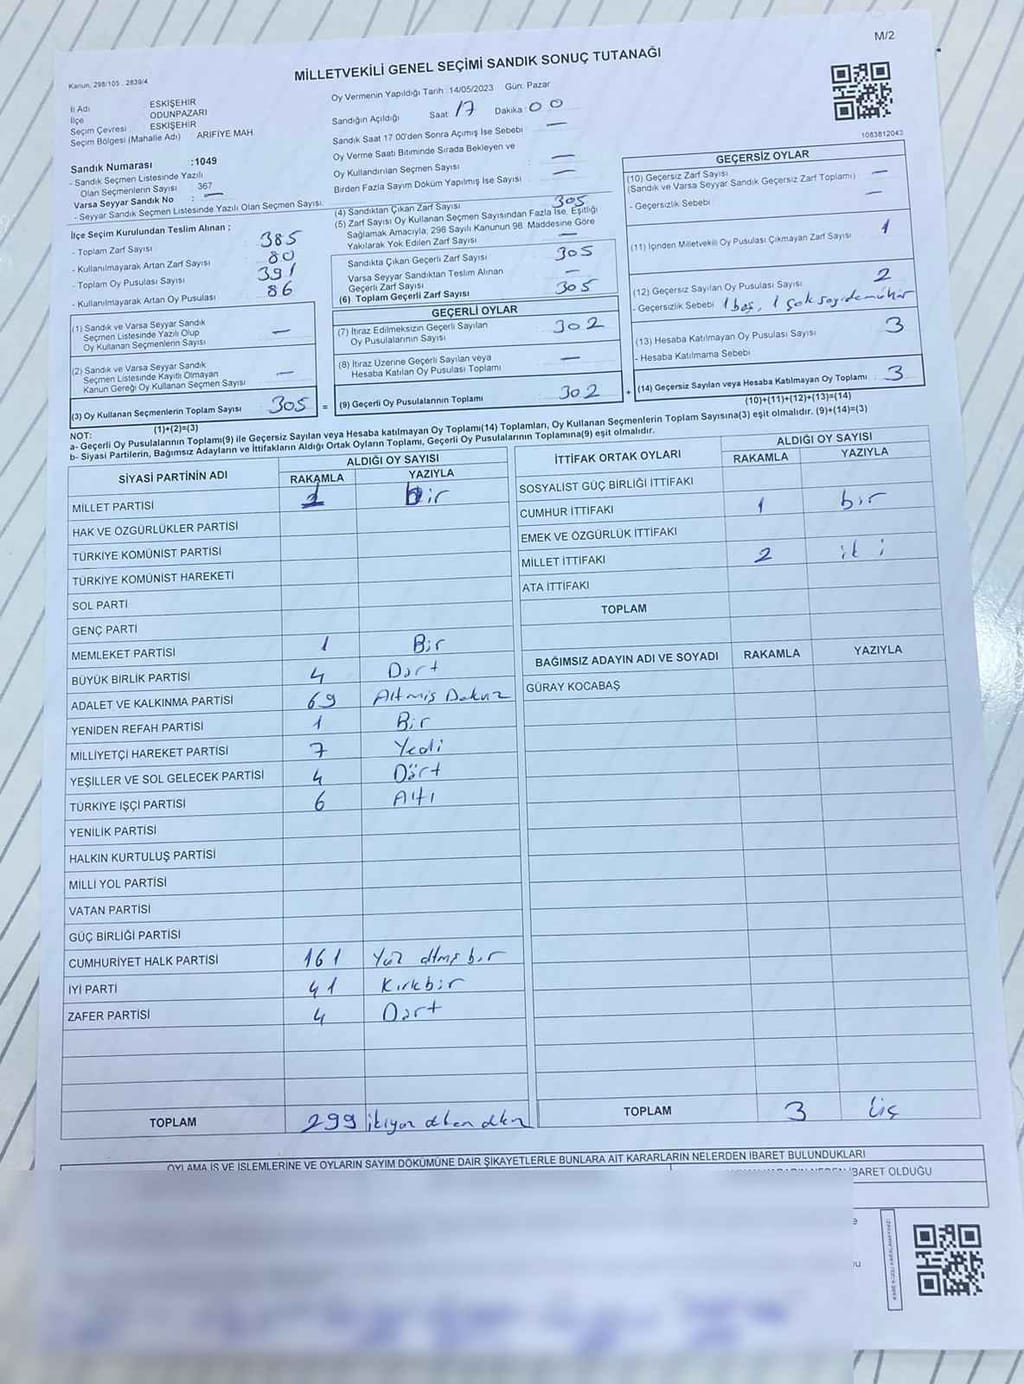 M/2
Kanun, 298/105 . 2839/4
MİLLETVEKİLİ GENEL SEÇİMİ SANDIK SONUÇ TUTANAĞI
İl Adı ESKİŞEHİR
İlçe ODUNPAZARI
Seçim Çevresi ESKİŞEHİR
Seçim Bölgesi (Mahalle Adı) ARİFİYE MAH.
Sandık Numarası :1049
- Sandık Seçmen Listesinde Yazılı
Olan Seçmenlerin Sayısı 367
Varsa Seyyar Sandık No : —
- Seyyar Sandık Seçmen Listesinde Yazılı Olan Seçmen Sayısı
Oy Vermenin Yapıldığı Tarih :14/05/2023 Gün: Pazar
Sandığın Açıldığı Saat: 17 Dakika: 00
Sandık Saat 17.00'den Sonra Açımış İse Sebebi —
Oy Verme Saati Bitiminde Sırada Bekleyen ve
Oy Kullandırılan Seçmen Sayısı : —
Birden Fazla Sayım Döküm Yapılmış İse Sayısı : —
1083812043
İlçe Seçim Kurulundan Teslim Alınan ;
- Toplam Zarf Sayısı 385
- Kullanılmayarak Artan Zarf Sayısı 80
- Toplam Oy Pusulası Sayısı 391
- Kullanılmayarak Artan Oy Pusulası 86
(1) Sandık ve Varsa Seyyar Sandık
Seçmen Listesinde Yazılı Olup
Oy Kullanan Seçmenlerin Sayısı —
(2) Sandık ve Varsa Seyyar Sandık
Seçmen Listesinde Kayıtlı Olmayan
Kanun Gereği Oy Kullanan Seçmen Sayısı —
(3) Oy Kullanan Seçmenlerin Toplam Sayısı 305 =
(1)+(2)=(3)
(4) Sandıktan Çıkan Zarf Sayısı 305
(5) Zarf Sayısı Oy Kullanan Seçmen Sayısından Fazla İse, Eşitliği
Sağlamak Amacıyla, 298 Sayılı Kanunun 98. Maddesine Göre
Yakılarak Yok Edilen Zarf Sayısı —
Sandıkta Çıkan Geçerli Zarf Sayısı 305
Varsa Seyyar Sandıktan Teslim Alınan
Geçerli Zarf Sayısı —
(6) Toplam Geçerli Zarf Sayısı 305
GEÇERLİ OYLAR
(7) İtiraz Edilmeksizin Geçerli Sayılan
Oy Pusulalarının Sayısı 302
(8) İtiraz Üzerine Geçerli Sayılan veya
Hesaba Katılan Oy Pusulası Toplamı —
(9) Geçerli Oy Pusulalarının Toplamı 302 +
GEÇERSİZ OYLAR
(10) Geçersiz Zarf Sayısı —
(Sandık ve Varsa Seyyar Sandık Geçersiz Zarf Toplamı)
- Geçersizlik Sebebi —
(11) İçinden Milletvekili Oy Pusulası Çıkmayan Zarf Sayısı 1
(12) Geçersiz Sayılan Oy Pusulası Sayısı 2
- Geçersizlik Sebebi 1 boş, 1 çok sayıda mühür
(13) Hesaba Katılmayan Oy Pusulası Sayısı 3
- Hesaba Katılmama Sebebi
(14) Geçersiz Sayılan veya Hesaba Katılmayan Oy Toplamı 3
(10)+(11)+(12)+(13)=(14)
NOT:
a- Geçerli Oy Pusulalarının Toplamı(9) ile Geçersiz Sayılan veya Hesaba katılmayan Oy Toplamı(14) Toplamları, Oy Kullanan Seçmenlerin Toplam Sayısına(3) eşit olmalıdır. (9)+(14)=(3)
b- Siyasi Partilerin, Bağımsız Adayların ve İttifakların Aldığı Ortak Oyların Toplamı, Geçerli Oy Pusulalarının Toplamına(9) eşit olmalıdır.
SİYASİ PARTİNİN ADI ALDIĞI OY SAYISI
RAKAMLA YAZIYLA
MİLLET PARTİSİ 1 bir
HAK VE ÖZGÜRLÜKLER PARTİSİ
TÜRKİYE KOMÜNİST PARTİSİ
TÜRKİYE KOMÜNİST HAREKETİ
SOL PARTİ
GENÇ PARTİ
MEMLEKET PARTİSİ 1 Bir
BÜYÜK BİRLİK PARTİSİ 4 Dört
ADALET VE KALKINMA PARTİSİ 69 Altmış Dokuz
YENİDEN REFAH PARTİSİ 1 Bir
MİLLİYETÇİ HAREKET PARTİSİ 7 Yedi
YEŞİLLER VE SOL GELECEK PARTİSİ 4 Dört
TÜRKİYE İŞÇİ PARTİSİ 6 Altı
YENİLİK PARTİSİ
HALKIN KURTULUŞ PARTİSİ
MİLLİ YOL PARTİSİ
VATAN PARTİSİ
GÜÇ BİRLİĞİ PARTİSİ
CUMHURİYET HALK PARTİSİ 161 Yüz altmış bir
İYİ PARTİ 41 Kırkbir
ZAFER PARTİSİ 4 Dört
TOPLAM 299
İTTİFAK ORTAK OYLARI ALDIĞI OY SAYISI
RAKAMLA YAZIYLA
SOSYALİST GÜÇ BİRLİĞİ İTTİFAKI
CUMHUR İTTİFAKI 1 bir
EMEK VE ÖZGÜRLÜK İTTİFAKI
MİLLET İTTİFAKI 2 iki
ATA İTTİFAKI
TOPLAM
BAĞIMSIZ ADAYIN ADI VE SOYADI RAKAMLA YAZIYLA
GÜRAY KOCABAŞ
TOPLAM 3 üç
OYLAMA İŞ VE İŞLEMLERİNE VE OYLARIN SAYIM DÖKÜMÜNE DAİR ŞİKAYETLERLE BUNLARA AİT KARARLARIN NELERDEN İBARET BULUNDUKLARI
İBARET OLDUĞU